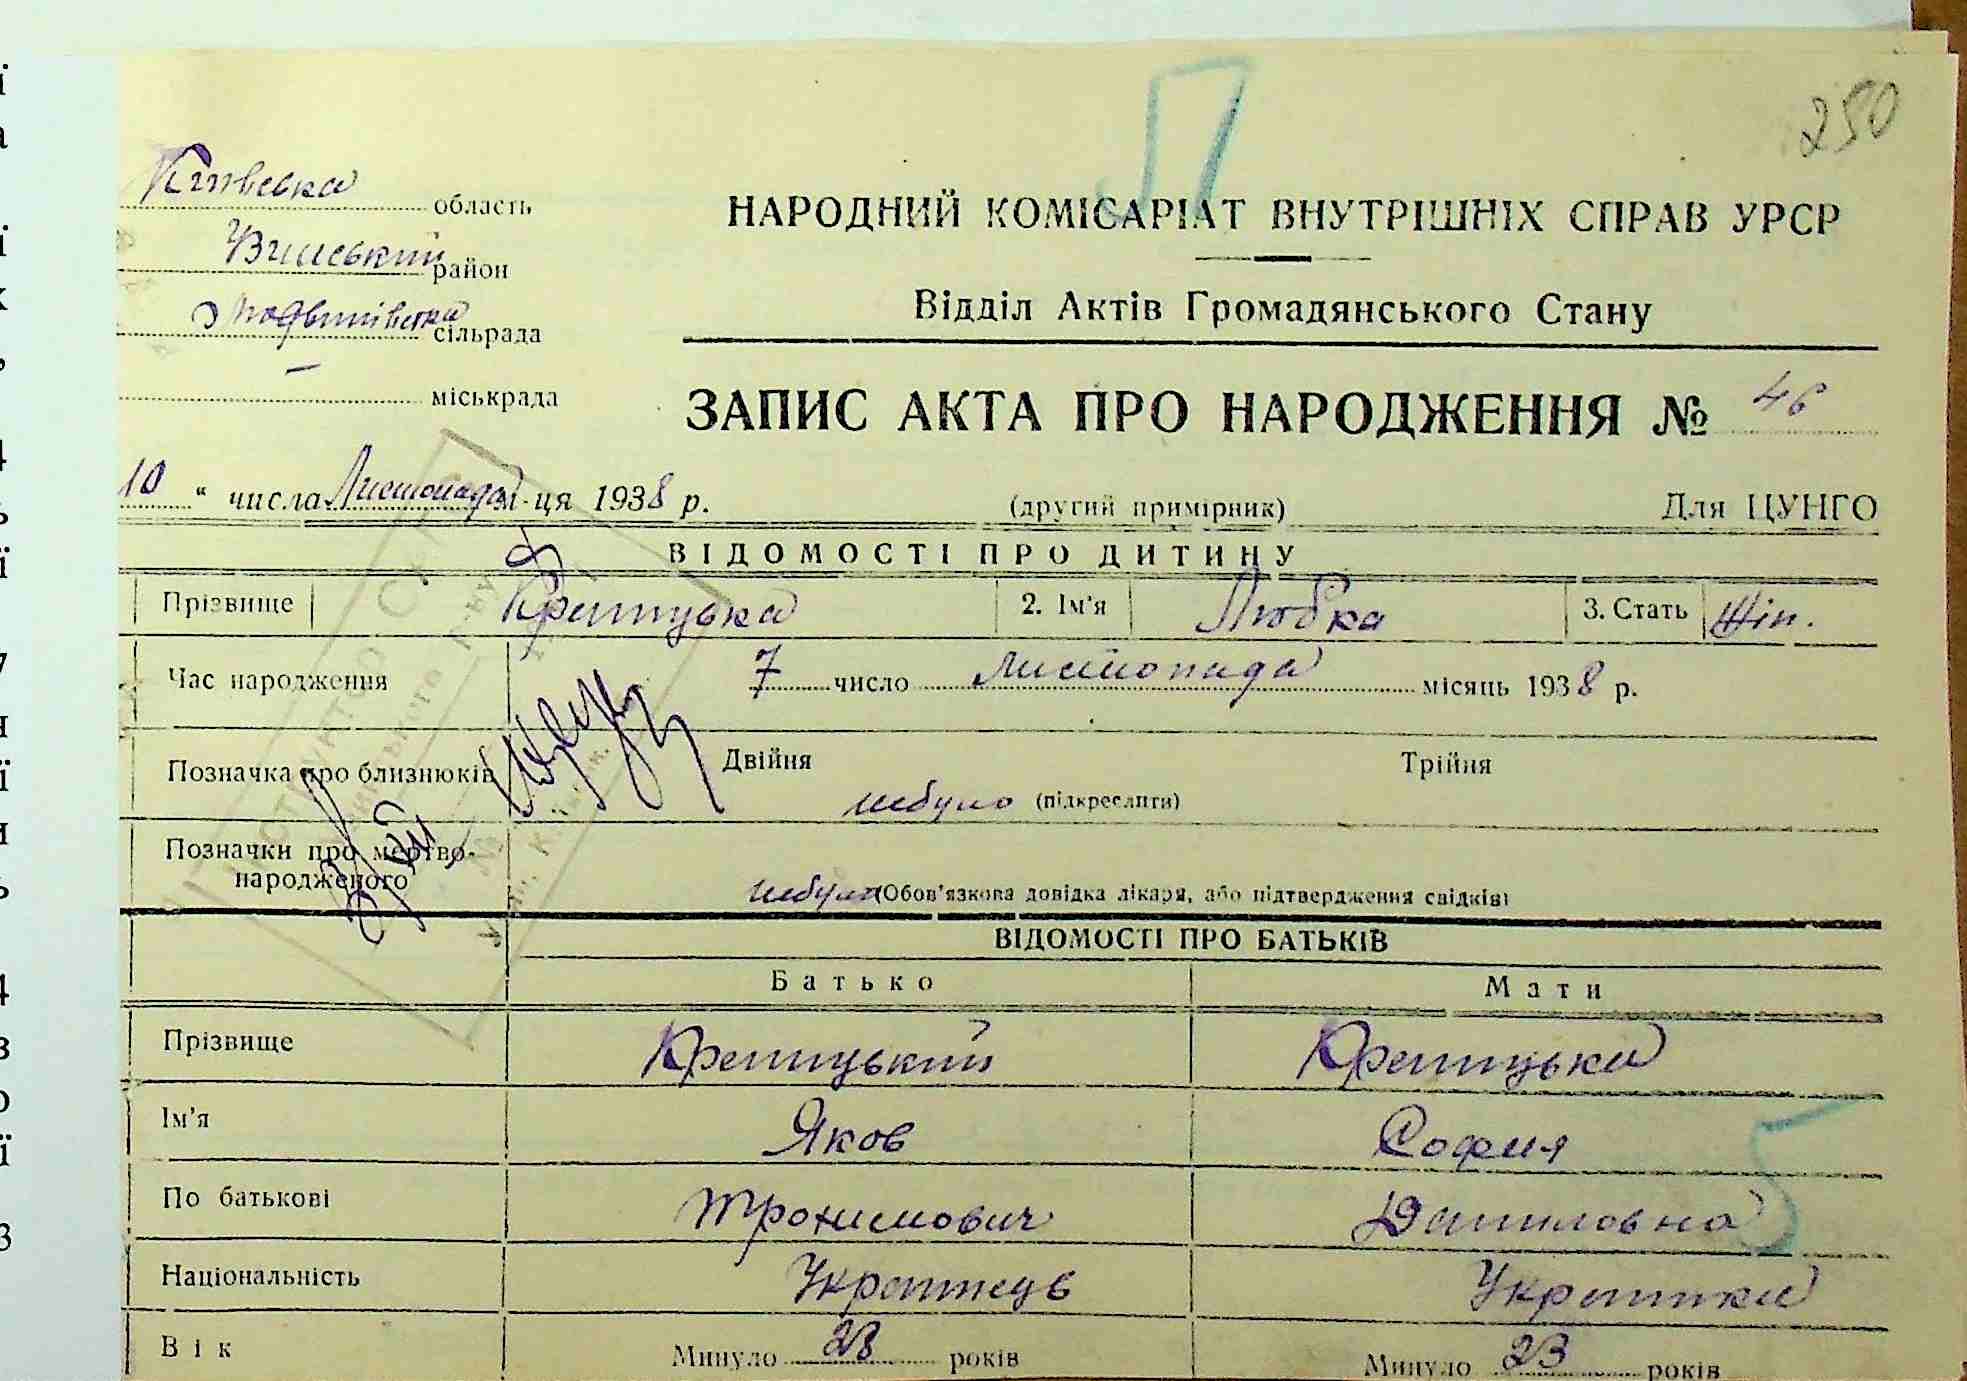 250
Київська область
район
сільрада
— міськрада
НАРОДНИЙ КОМІСАРІАТ ВНУТРІШНІХ СПРАВ УРСР
Відділ Актів Громадянського Стану
ЗАПИС АКТА ПРО НАРОДЖЕННЯ № 46
10 " числа Листопада м-ця 1938 р. (другий примірник) Для ЦУНГО
ВІДОМОСТІ ПРО ДИТИНУ
Прізвище 2. Ім'я Любка 3. Стать Жін.
Час народження 7 число Листопада місяць 1938 р.
Позначка про близнюків Двійня Трійня
небуло (підкреслити)
Позначки про мертво-
народженого небуло (Обов'язкова довідка лікаря, або підтвердження свідків)
ВІДОМОСТІ ПРО БАТЬКІВ
Батько Мати
Прізвище
Ім'я Яков София
По батькові Трохимович Даниловна
Національність Українець Українка
Вік Минуло 28 років Минуло 23 років